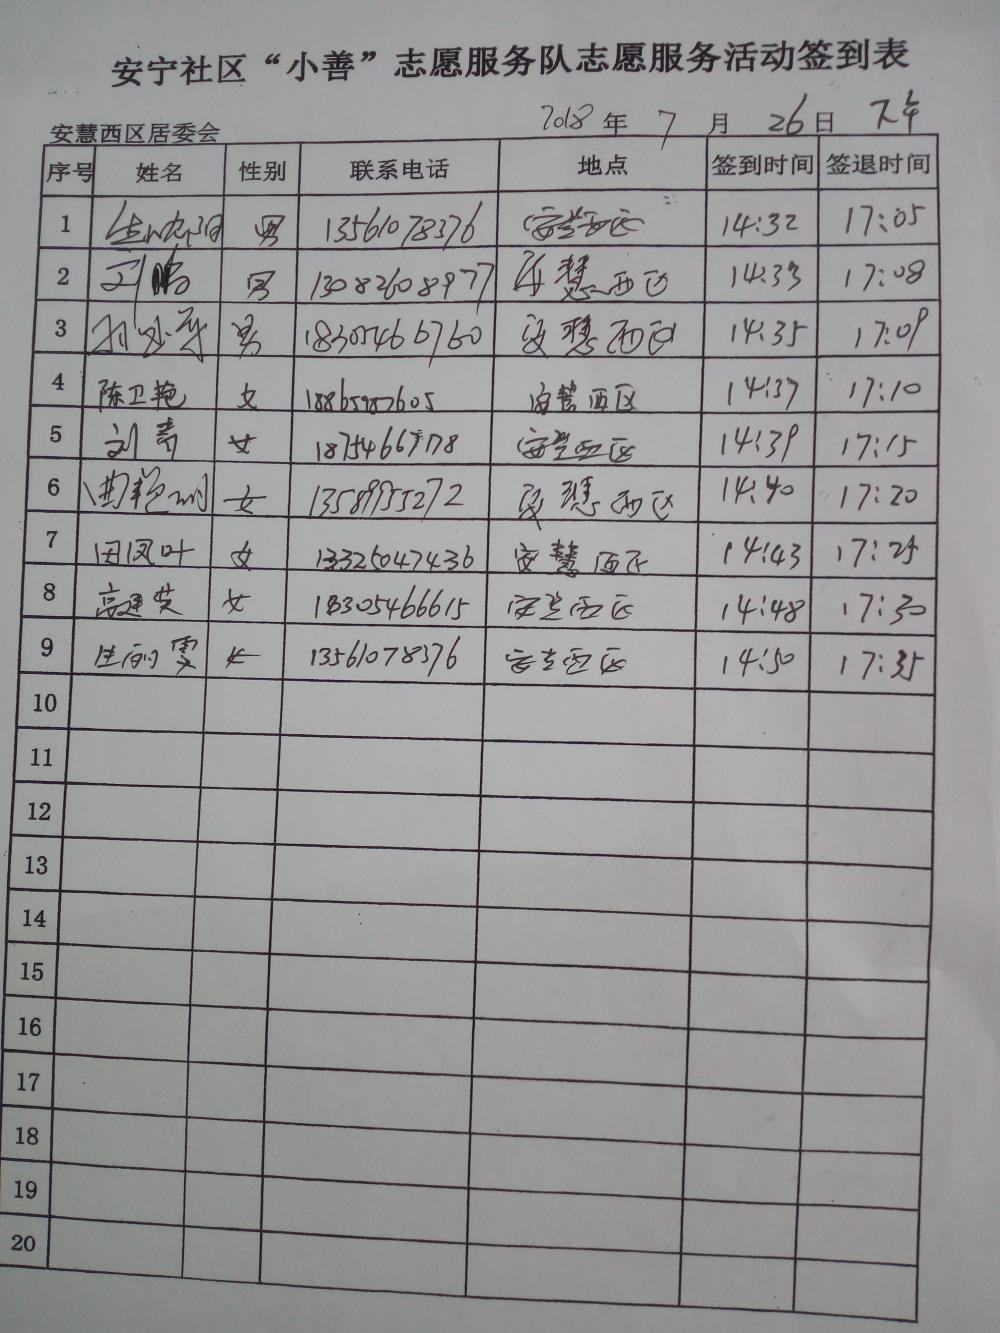 安宁社区“小善”志愿服务队志愿服务活动签到表
安慧西区居委会 2018年7月26日 下午
序号 姓名 性别 联系电话 地点 签到时间 签退时间
1 男 13561078376 安慧西区 14:32 17:05
2 刘鹏 男 13082608977 安慧西区 14:33 17:08
3 男 18305466760 安慧西区 14:35 17:09
4 陈卫艳 女 18865987605 安慧西区 14:37 17:10
5 刘青 女 安慧西区 14:39 17:15
6 曲艳丽 女 13589955272 安慧西区 14:40 17:20
7 田凤叶 女 13325047436 安慧西区 14:43 17:25
8 高建英 女 18305466615 安慧西区 14:48 17:30
9 女 13561078376 安慧西区 14:50 17:35
10
11
12
13
14
15
16
17
18
19
20